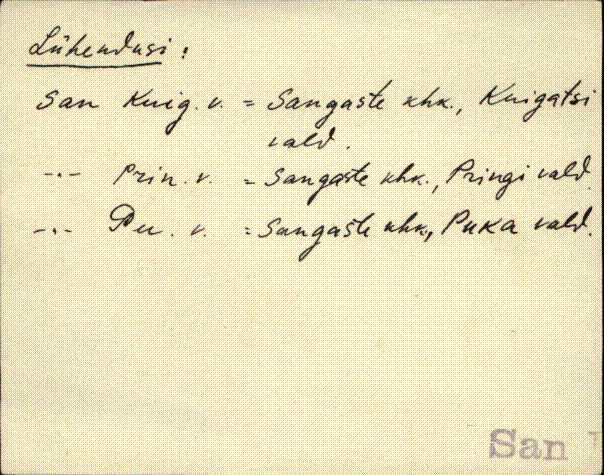 Lühendusi:
San Kuig. v. = Sangaste khk., Kuigatsi
vald.
-"- Prin. v. = Sangaste khk., Pringi vald.
-"- Pu. v. = Sangaste khk., Puka vald.
San